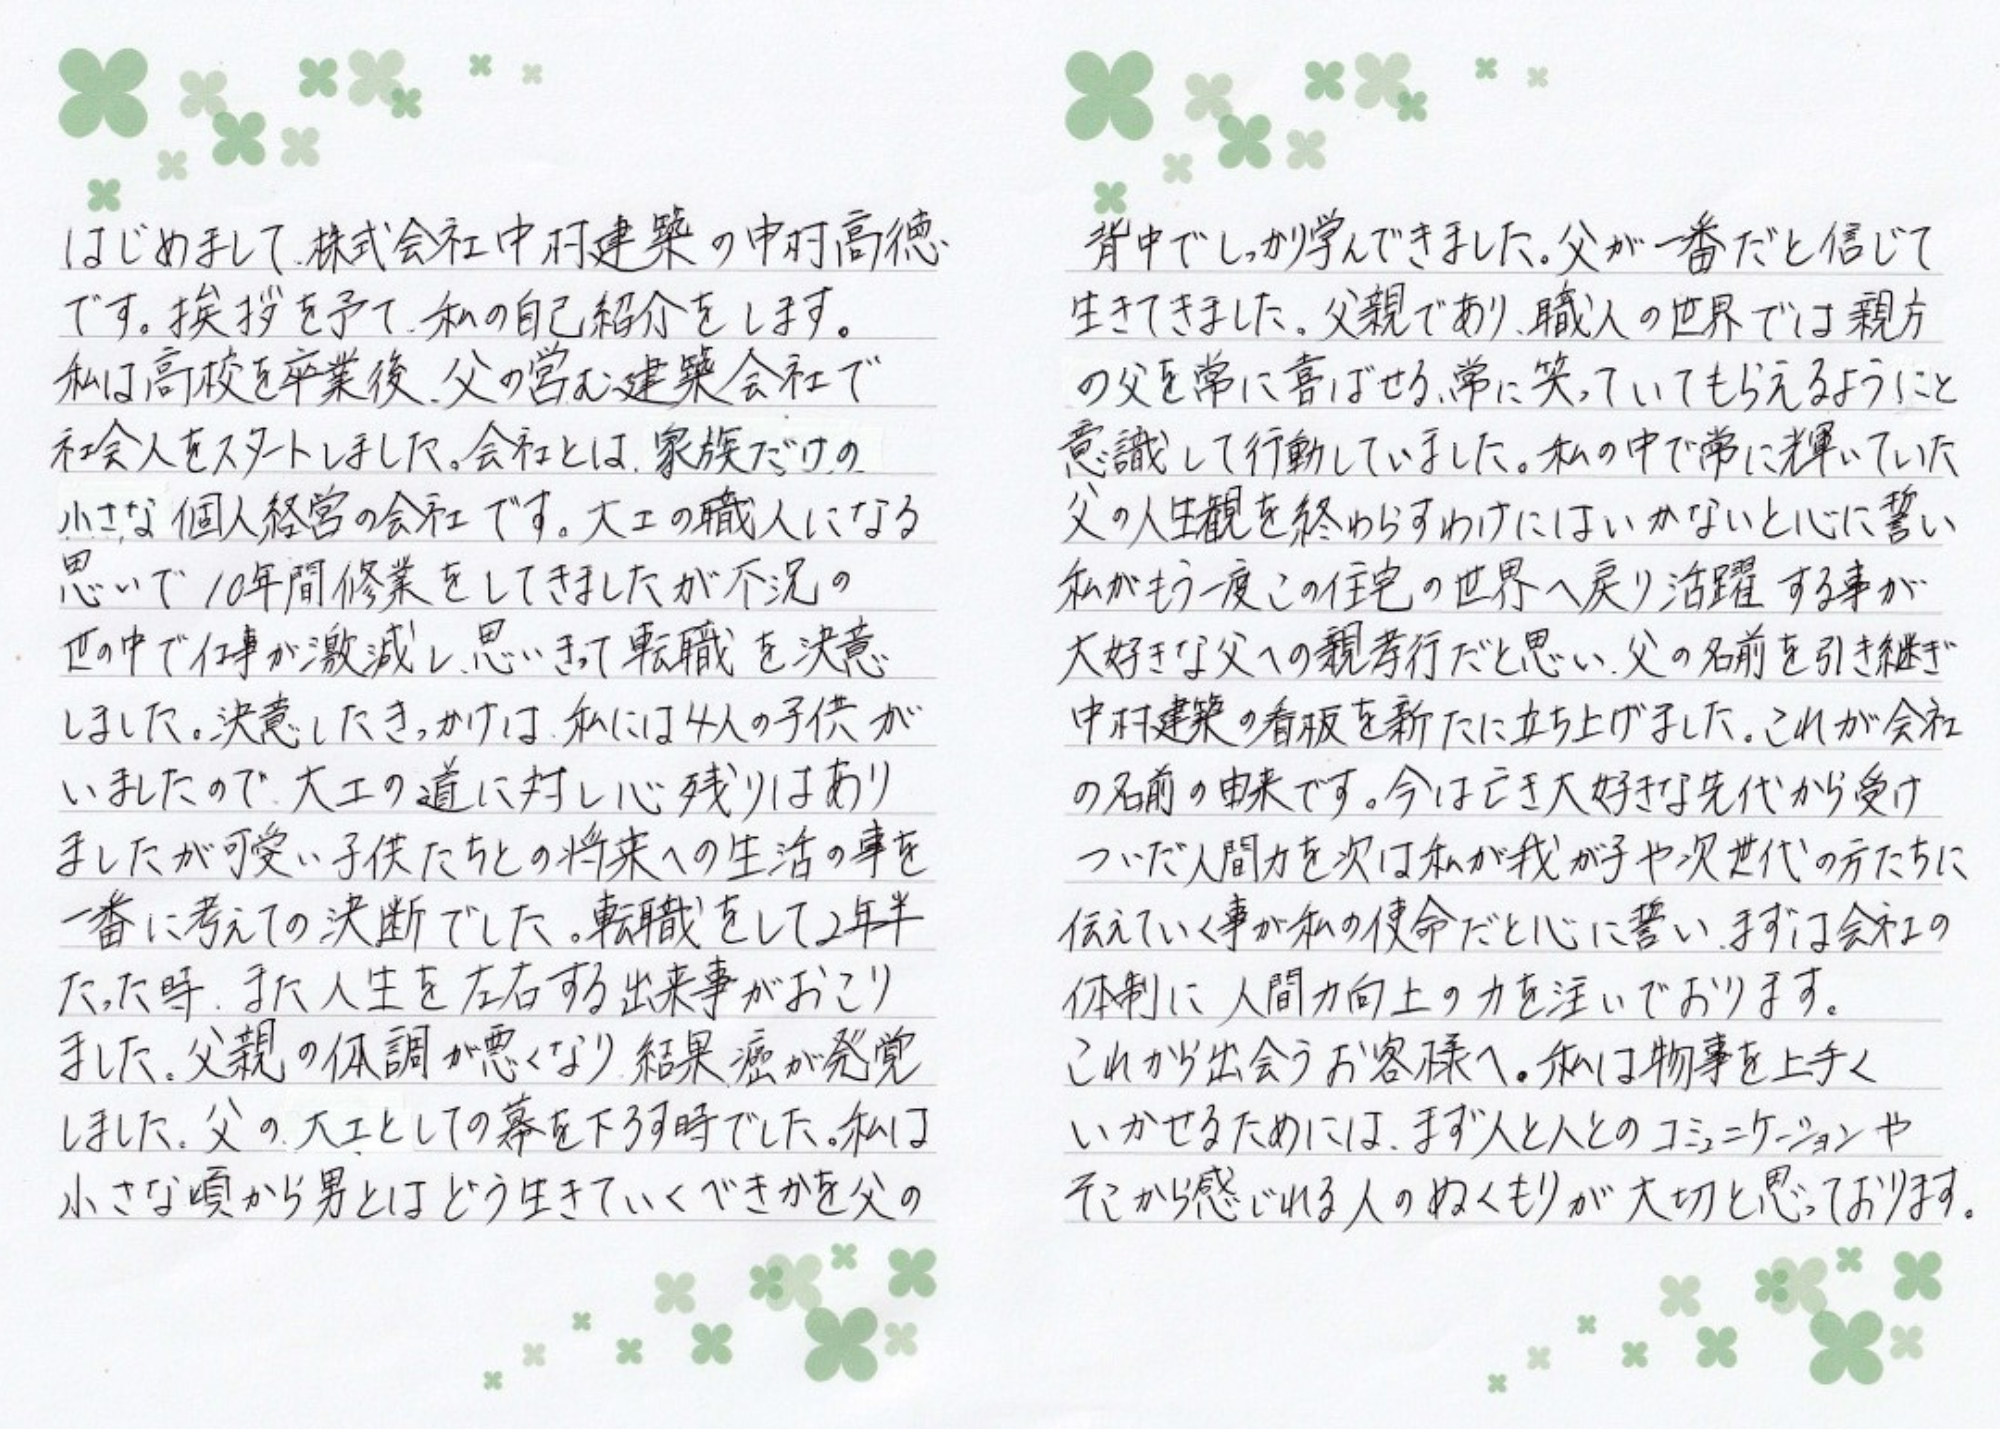 はじめまして、株式会社中村建築の中村高徳
です。挨拶を予て、私の自己紹介をします。
私は高校を卒業後、父の営む建築会社で
社会人をスタートしました。会社とは、家族だけの
小さな個人経営の会社です。大工の職人になる
思いで10年間修業をしてきましたが不況の
世の中で仕事が激減し、思いきって転職を決意
しました。決意したきっかけは、私には4人の子供が
いましたので、大工の道に対し心残りはあり
ましたが可愛い子供たちとの将来への生活の事を
一番に考えての決断でした。転職をして2年半
たった時、また人生を左右する出来事がおこり
ました。父親の体調が悪くなり、結果癌が発覚
しました。父の、大工としての幕を下ろす時でした。私は
小さな頃から男とはどう生きていくべきかを父の
背中でしっかり学んできました。父が一番だと信じて
生きてきました。父親であり、職人の世界では親方
の父を常に喜ばせる、常に笑っていてもらえるようにと
意識して行動していました。私の中で常に輝いていた
父の人生観を終わらすわけにはいかないと心に誓い
私がもう一度この住宅の世界へ戻り活躍する事が
大好きな父への親孝行だと思い、父の名前を引き継ぎ
中村建築の看板を新たに立ち上げました。これが会社
の名前の由来です。今は亡き大好きな先代から受け
ついだ人間力を次は私が我が子や次世代の方たちに
伝えていく事が私の使命だと心に誓い、まずは会社の
体制に人間力向上の力を注いでおります。
これから出会うお客様へ。私は物事を上手く
いかせるためには、まず人と人とのコミュニケーションや
そこから感じれる人のぬくもりが大切と思っております。